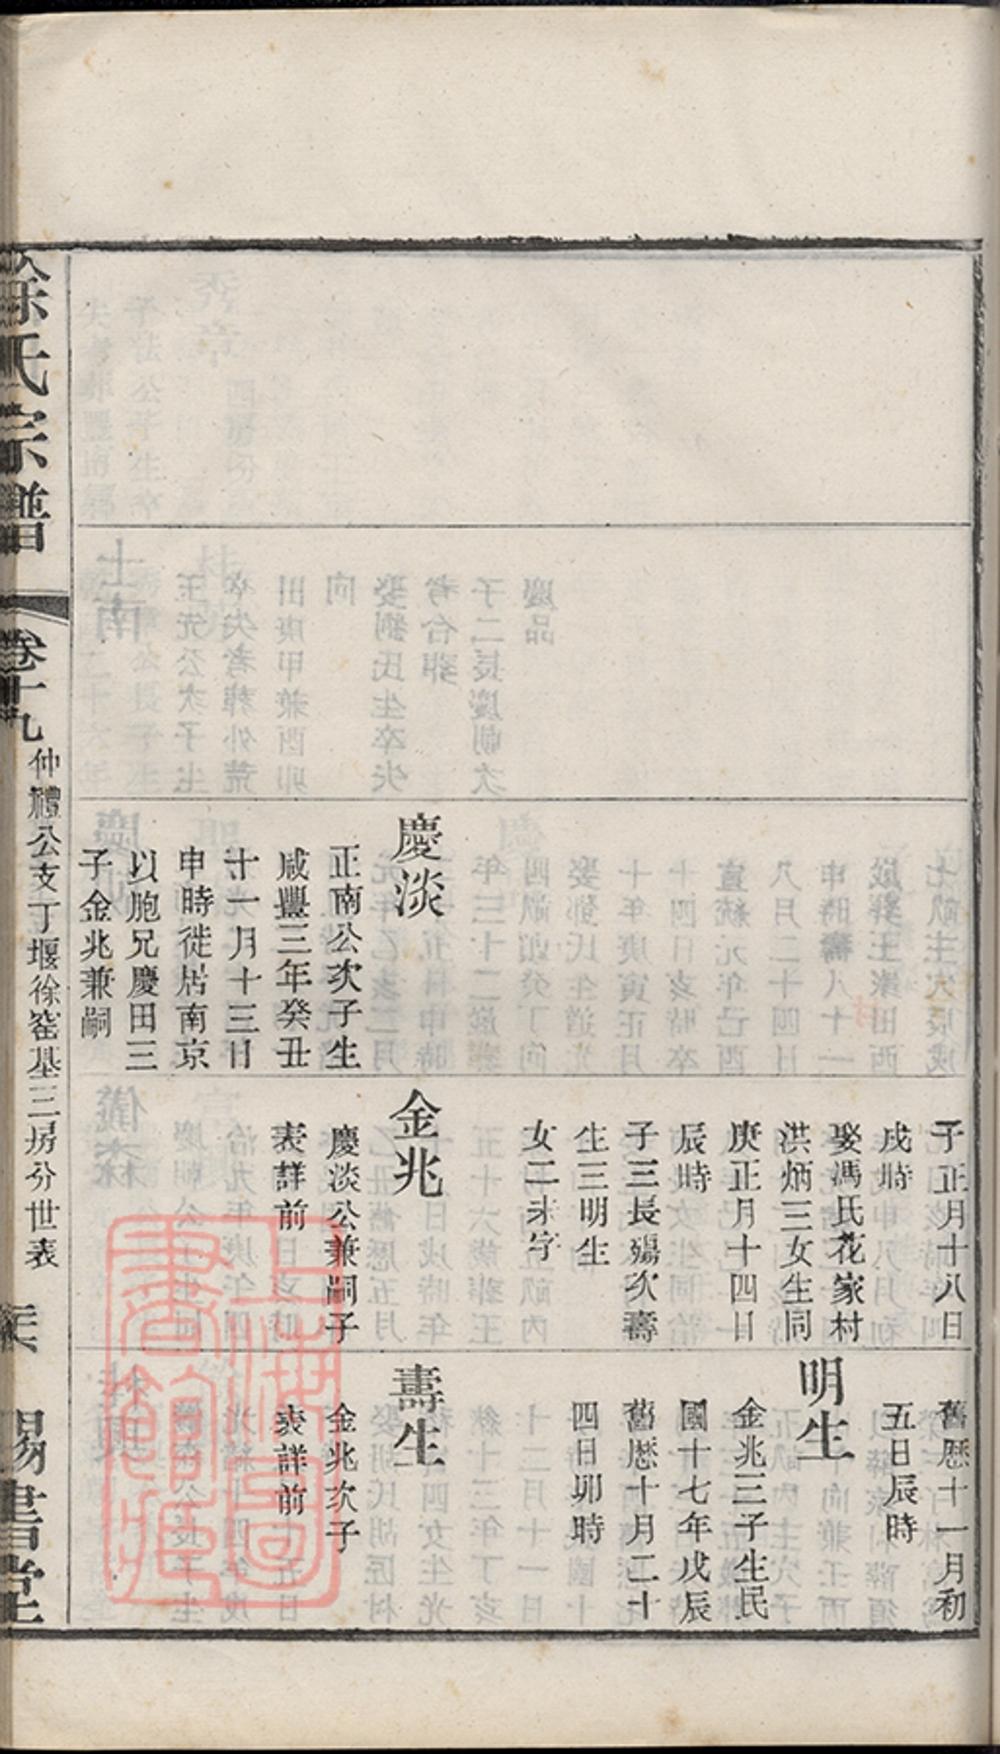 慶淡
正南公次子生
咸豐三年癸丑
十一月十三日
申時徙居南京
以胞兄慶田三
子金兆兼嗣
子正月十八日
戌時
娶馮氏花家村
洪炳三女生同
庚正月十四日
辰時
子三長殤次壽
生三明生
女二未字
金兆
慶淡公兼嗣子
表詳前
舊歷十一月初
五日辰時
明生
金兆三子生民
國十七年戊辰
舊歷十月二十
四日卯時
壽生
金兆次子
表詳前
徐氏宗譜
卷十九
仲禮公支丁堰徐窑基三房分世表
錫書堂
上海圖書館藏